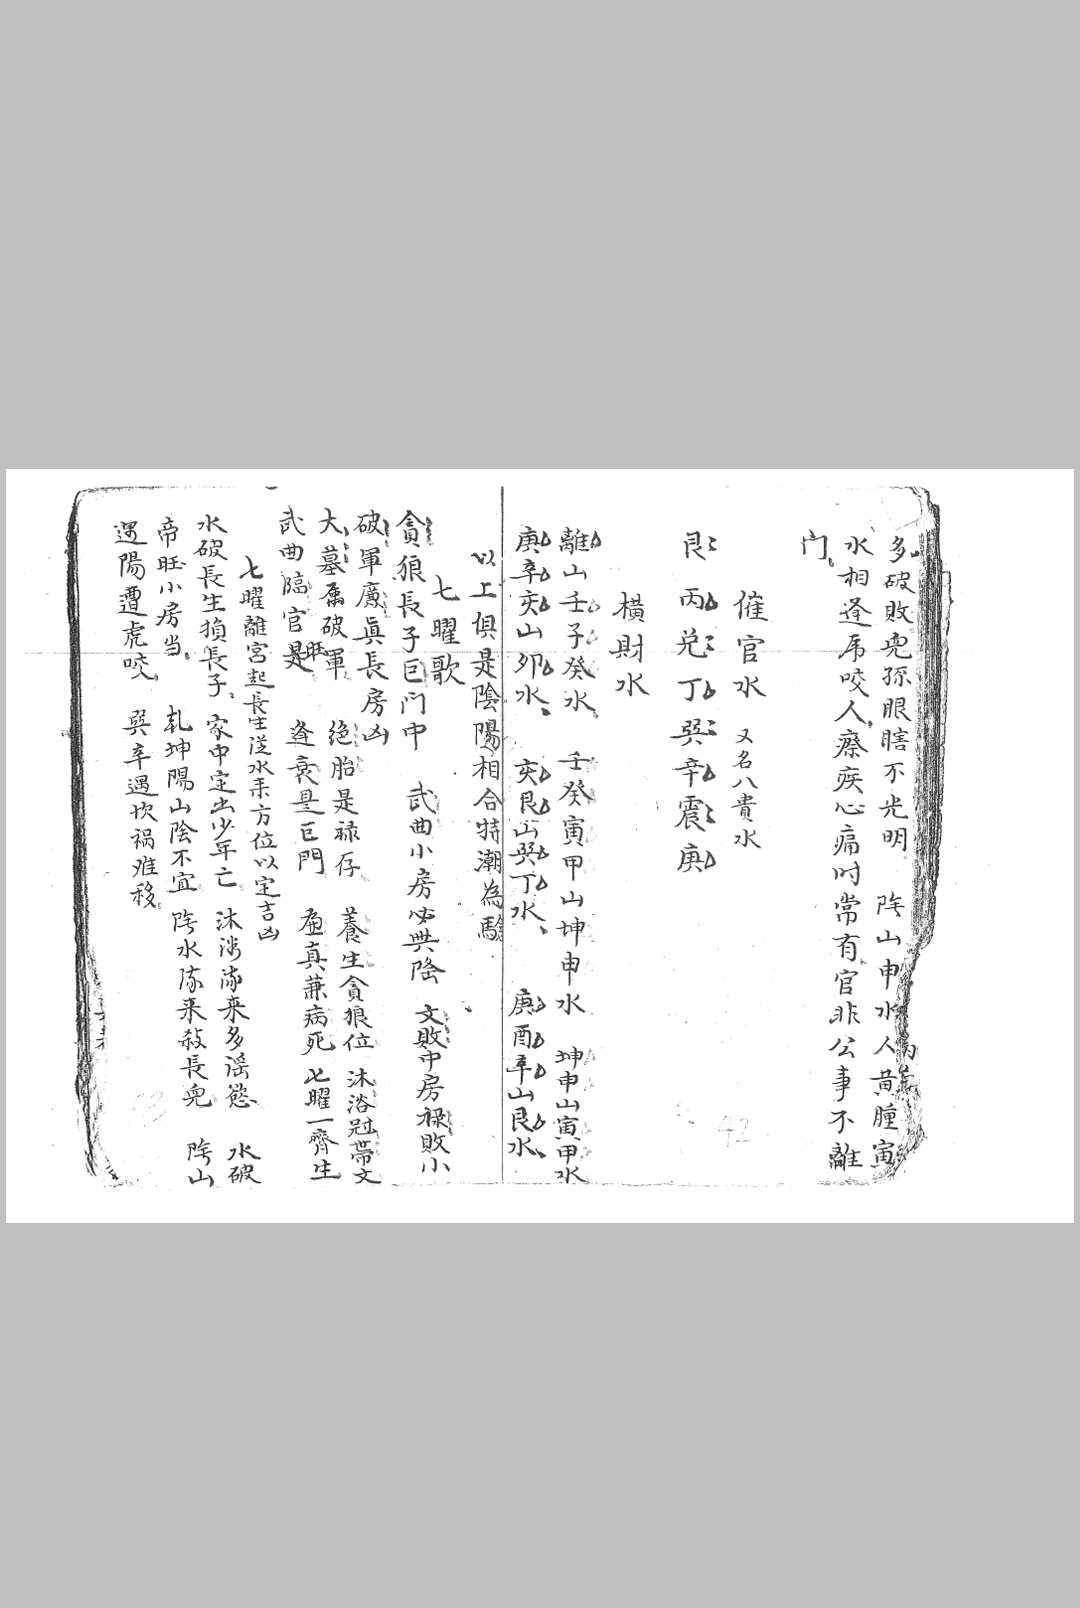 多破敗兜孫眼瞎不光明 陰山申水人黄腫寅
水相逢虎咬人療疾心痛时常有官非公事不離
门
催官水 又名八貴水
艮丙兑丁巽辛震庚
橫財水
離山壬子癸水 壬癸寅甲山坤申水 坤申山寅甲水
庚辛亥山夘水 亥艮山巽丁水 庚酉辛山艮水
以上俱是陰陽相合特潮為驗
七曜歌
貪狼長子巨门中 武曲小房必興隆 文敗中房禄敗小
破軍廉眞長房凶
大墓属破軍 绝胎是禄存 養生貪狼位 沐浴冠帶文
武曲臨官旺 逢衰是巨門 廉真兼病死 七曜一齊生
七曜離宮起長生从水来方位以定吉凶
水破長生損長子 家中定出少年亡 沐浴流来多滛慾 水破
帝旺小房当 乹坤陽山陰不宜 陰水流来殺長兜 陰山
遇陽遭虎咬 巽辛遇坎祸难移